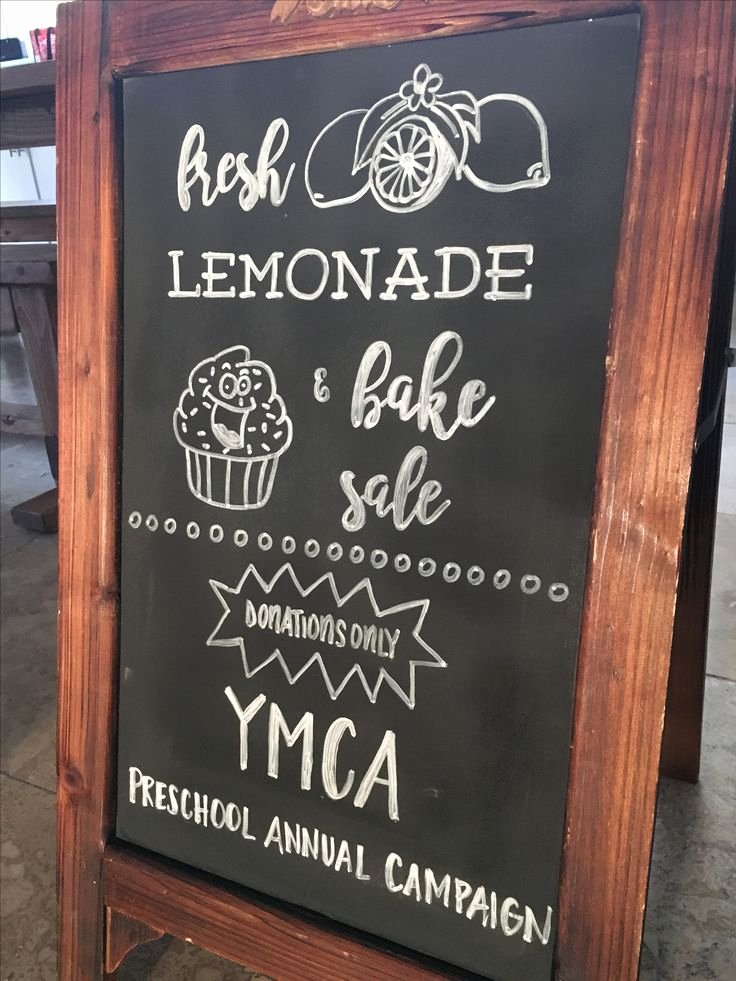 fresh
LEMONADE
& bake
sale
DONATIONS ONLY
YMCA
PRESCHOOL ANNUAL CAMPAIGN